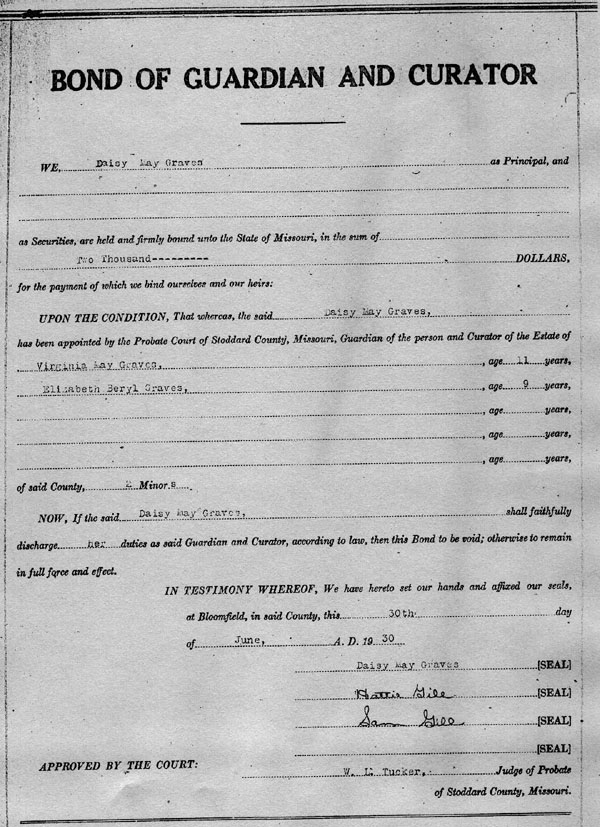 BOND OF GUARDIAN AND CURATOR
WE, Daisy May Graves as Principal, and
as Securities, are held and firmly bound unto the State of Missouri, in the sum of
Two Thousand--------- DOLLARS,
for the payment of which we bind ourselves and our heirs:
UPON THE CONDITION, That whereas, the said Daisy May Graves,
has been appointed by the Probate Court of Stoddard County, Missouri, Guardian of the person and Curator of the Estate of
Virginia May Graves, , age 11 years,
Elizabeth Beryl Graves, , age 9 years,
, age years,
, age years,
, age years,
of said County, Minor s
NOW, If the said Daisy May Graves, shall faithfully
discharge her duties as said Guardian and Curator, according to law, then this Bond to be void; otherwise to remain
in full force and effect.
IN TESTIMONY WHEREOF, We have hereto set our hands and affixed our seals,
at Bloomfield, in said County, this 30th day
of June, A. D. 19 30
Daisy May Graves [SEAL]
Hattie Gill [SEAL]
Sam Gill [SEAL]
[SEAL]
APPROVED BY THE COURT: W. L. Tucker, Judge of Probate
of Stoddard County, Missouri.